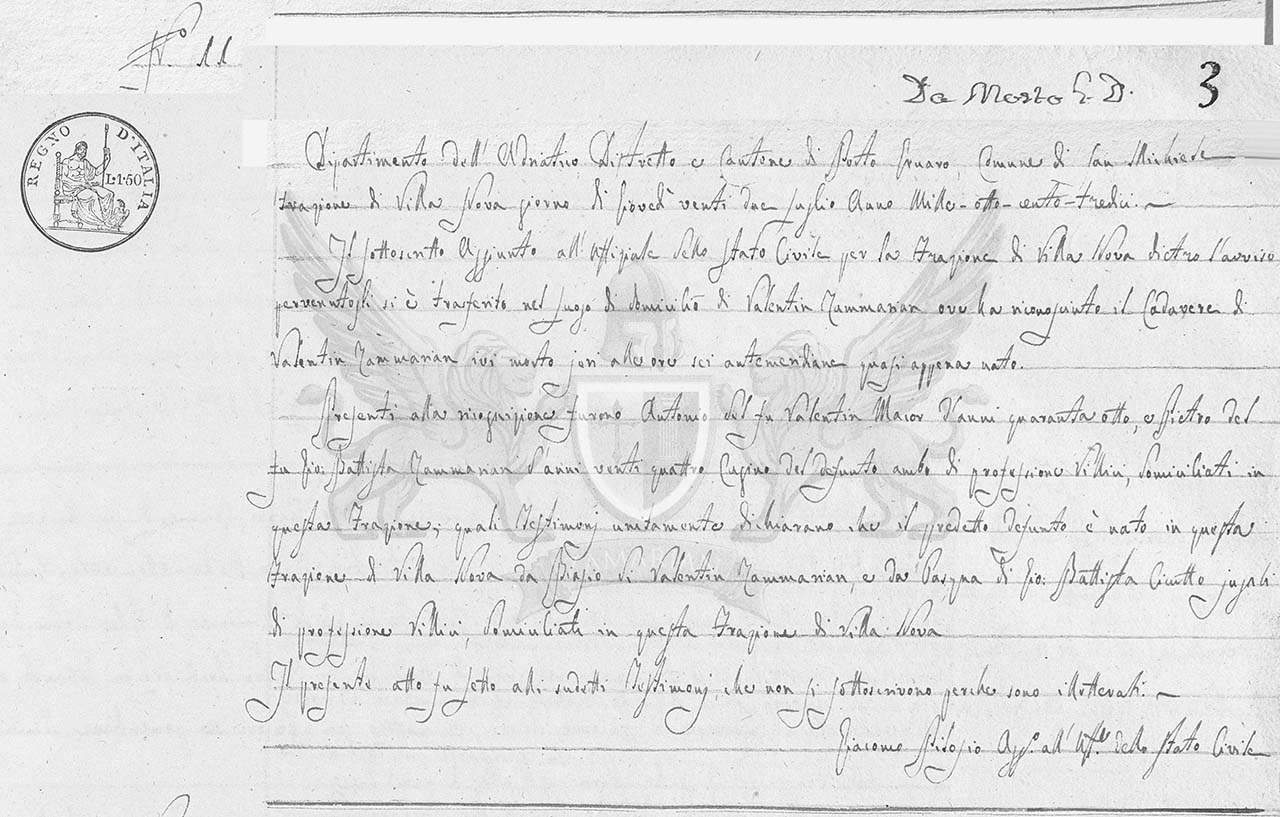 N.° 11
Da Mosto G. D. 3
REGNO D'ITALIA
L.1.50
Dipartimento dell' Adriatico Distretto e Cantone di Porto Gruaro, Comune di San Michiele
frazione di Villa Nova giorno di Giovedì venti due Luglio Anno Mille-otto-cento-tredici. ~
Il sottoscritto Aggiunto all' Uffiziale dello Stato Civile per la frazione di Villa Nova dietro l'avviso
pervenutogli si è trasferito nel luogo di domicilio di Valentin Zammarian ove ha riconosciuto il Cadavere di
Valentin Zammarian ivi morto jeri alle ore sei antemeridiane quasi appena nato.
Presenti alla ricognizione furono Antonio del fu Valentin Maior d'anni quaranta otto, e Pietro del
fu Gio: Battista Zammarian d'anni venti quattro Cugino del defunto ambo di professione Villici, domiciliati in
questa frazione, quali Testimonj unitamente dichiarano che il predetto defunto è nato in questa
frazione di Villa Nova da Biasio di Valentin Zammarian, e da di Gio: Battista Cicutto jugali
di professione Villici, domiciliati in questa frazione di Villa Nova
Il presente atto fu letto alli sudetti Testimonj, che non si sottoscrivono perche sono illetterati. ~
Giacomo Aggo. all' Uffle. dello Stato Civile